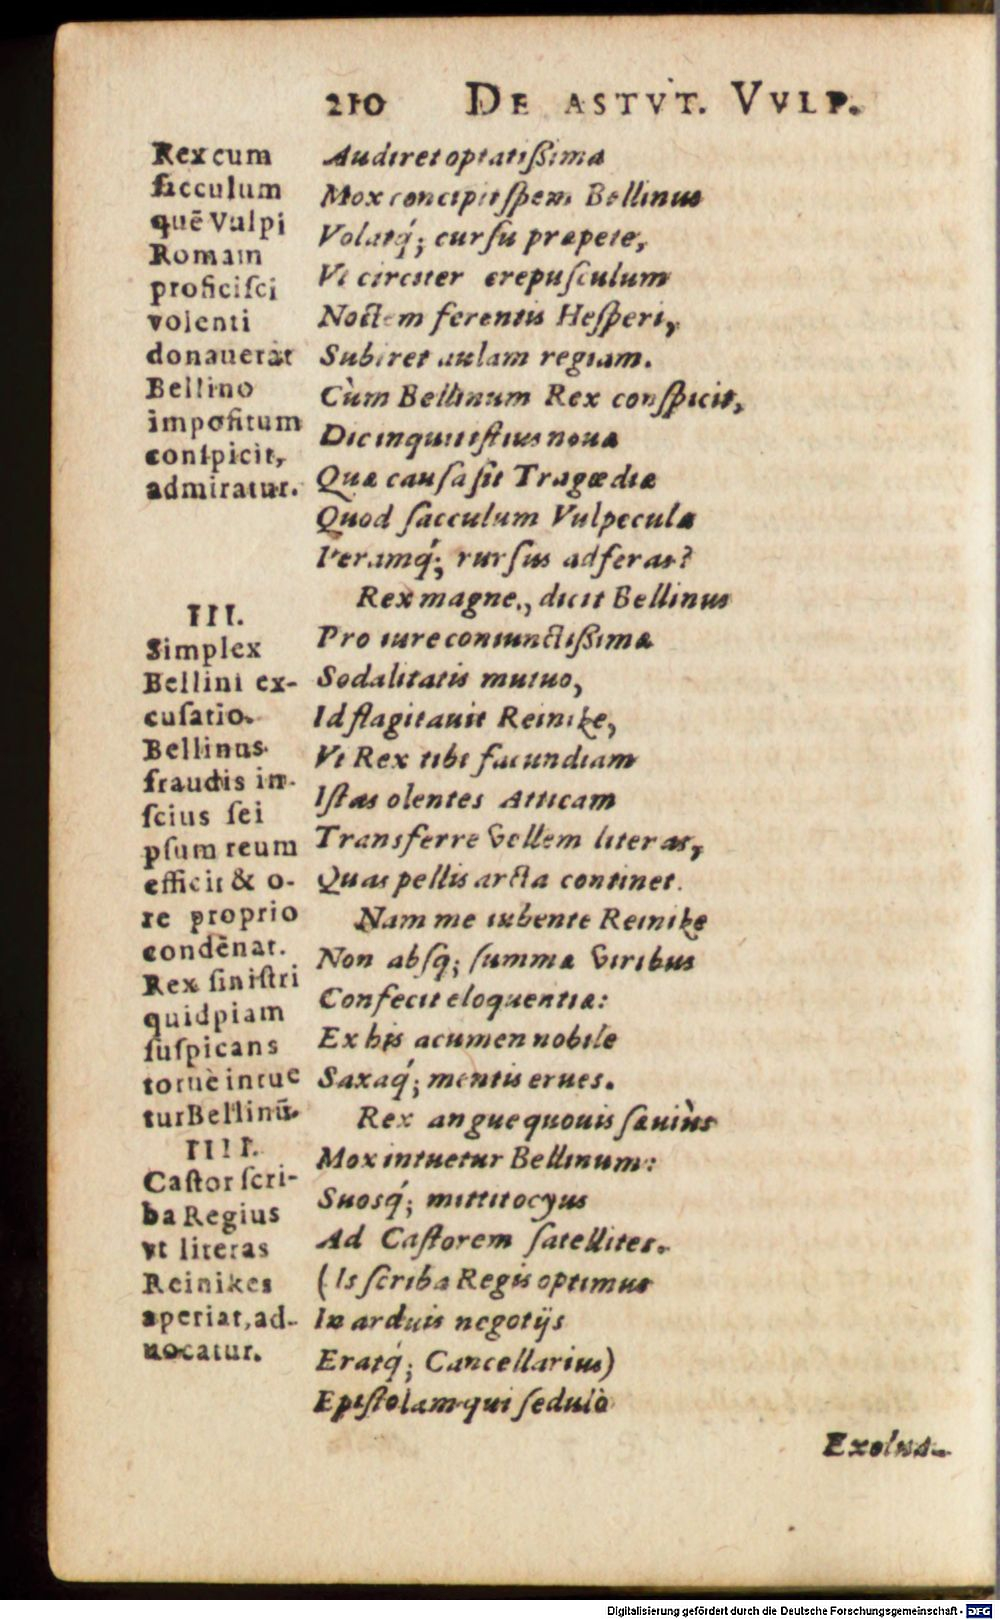 210 DE ASTVT. VVLP.
Rex cum
sacculum
quē Vulpi
Romam
proficisci
volenti
donauerat
Bellino
impositum
conspicit,
admiratur.
III.
Simplex
Bellini ex-
cusatio.
Bellinus
fraudis in-
scius sei
psum reum
efficit & o-
re proprio
condēnat.
Rex sinistri
quidpiam
suspicans
toruè intue
tur Bellinū.
IIII.
Castor scri-
ba Regius
vt literas
Reinikes
aperiat, ad-
uocatur.
Audiret optatißima
Mox concipit spem Bellinus
Volatq́; cursu præpete,
Vt circiter crepusculum
Noctem ferentis Hesperi,
Subiret aulam regiam.
Cùm Bellinum Rex conspicit,
Dic inquit istius noua
Quæ causa sit Tragœdiæ
Quod sacculum Vulpeculæ
Peramq́; rursus adferas?
Rex magne, dicit Bellinus
Pro iure coniunctißimæ
Sodalitatis mutuo,
Id flagitauit Reinike,
Vt Rex tibi facundiam
Istas olentes Atticam
Transferre vellem literas,
Quas pellis arcta continet.
Nam me iubente Reinike
Non absq; summæ viribus
Confecit eloquentiæ:
Ex his acumen nobile
Saxaq́; mentis erues.
Rex angue quouis sæuiùs
Mox intuetur Bellinum:
Suosq́; mittit ocyus
Ad Castorem satellites.
(Is scriba Regis optimus
In arduis negotijs
Eratq́; Cancellarius)
Epistolam qui sedulò
Exolua-
Digitalisierung gefördert durch die Deutsche Forschungsgemeinschaft - DFG